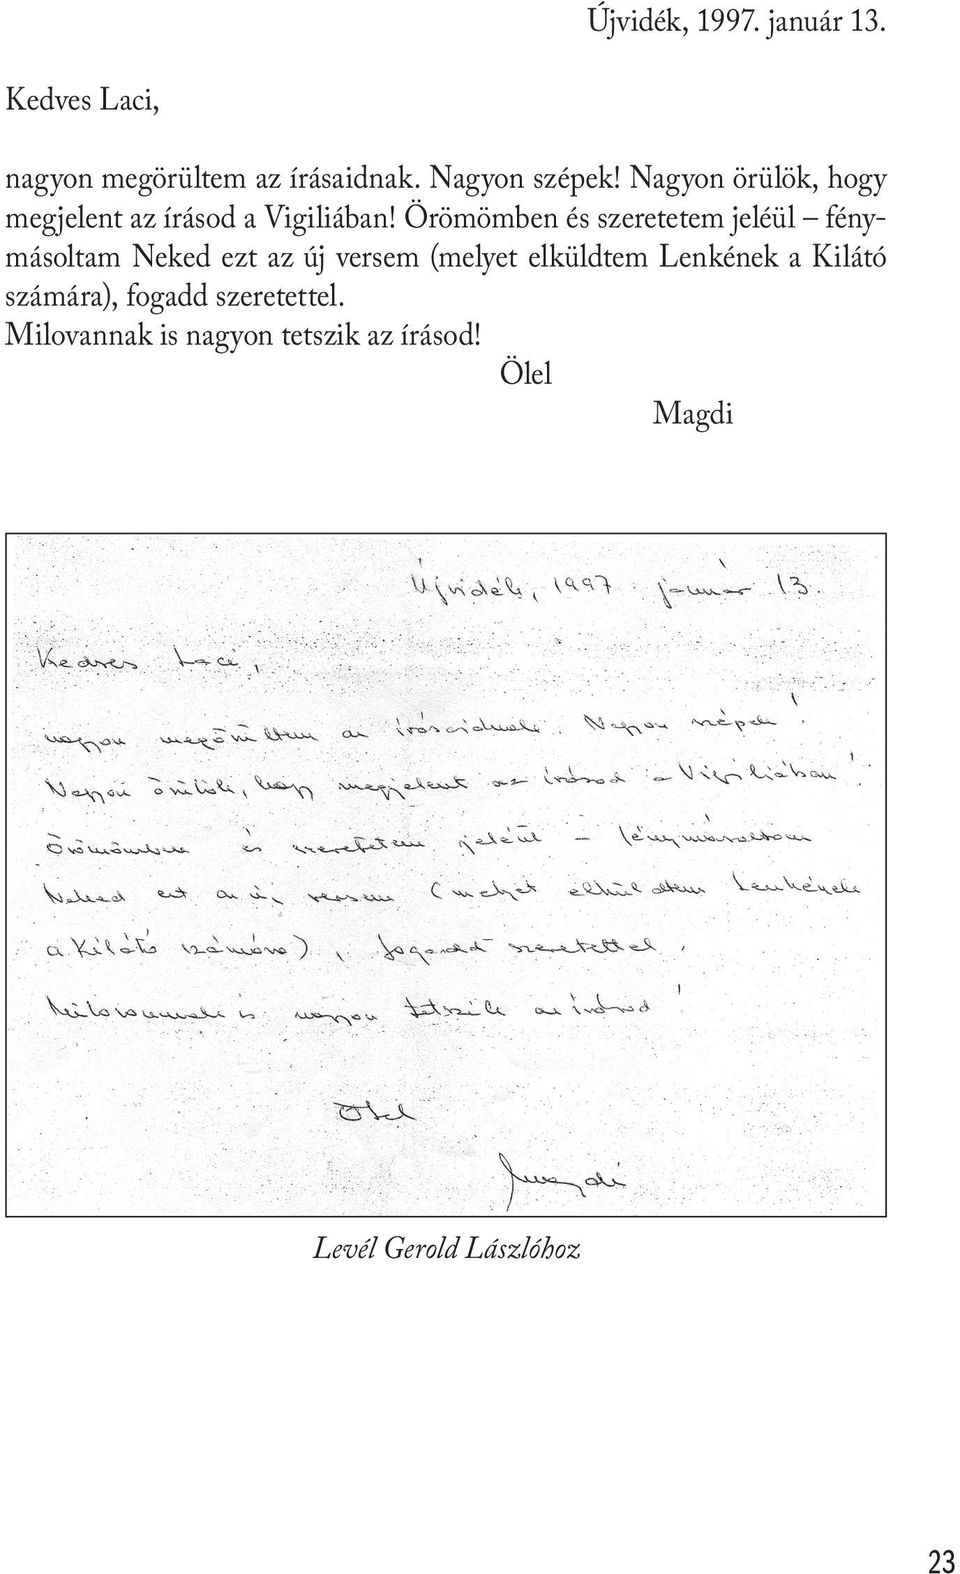 Újvidék, 1997. január 13.
Kedves Laci,
nagyon megörültem az írásaidnak. Nagyon szépek! Nagyon örülök, hogy
megjelent az írásod a Vigiliában! Örömömben és szeretetem jeléül – fény-
másoltam Neked ezt az új versem (melyet elküldtem Lenkének a Kilátó
számára), fogadd szeretettel.
Milovannak is nagyon tetszik az írásod!
Ölel
Magdi
Újvidék, 1997. január 13.
Kedves Laci,
nagyon megörültem az írásaidnak. Nagyon szépek!
Nagyon örülök, hogy megjelent az írásod a Vigiliában!
Örömömben és szeretetem jeléül – fénymásoltam
Neked ezt az új versem (melyet elküldtem Lenkének
a Kilátó számára), fogadd szeretettel.
Milovannak is nagyon tetszik az írásod!
Ölel
Magdi
Levél Gerold Lászlóhoz
23